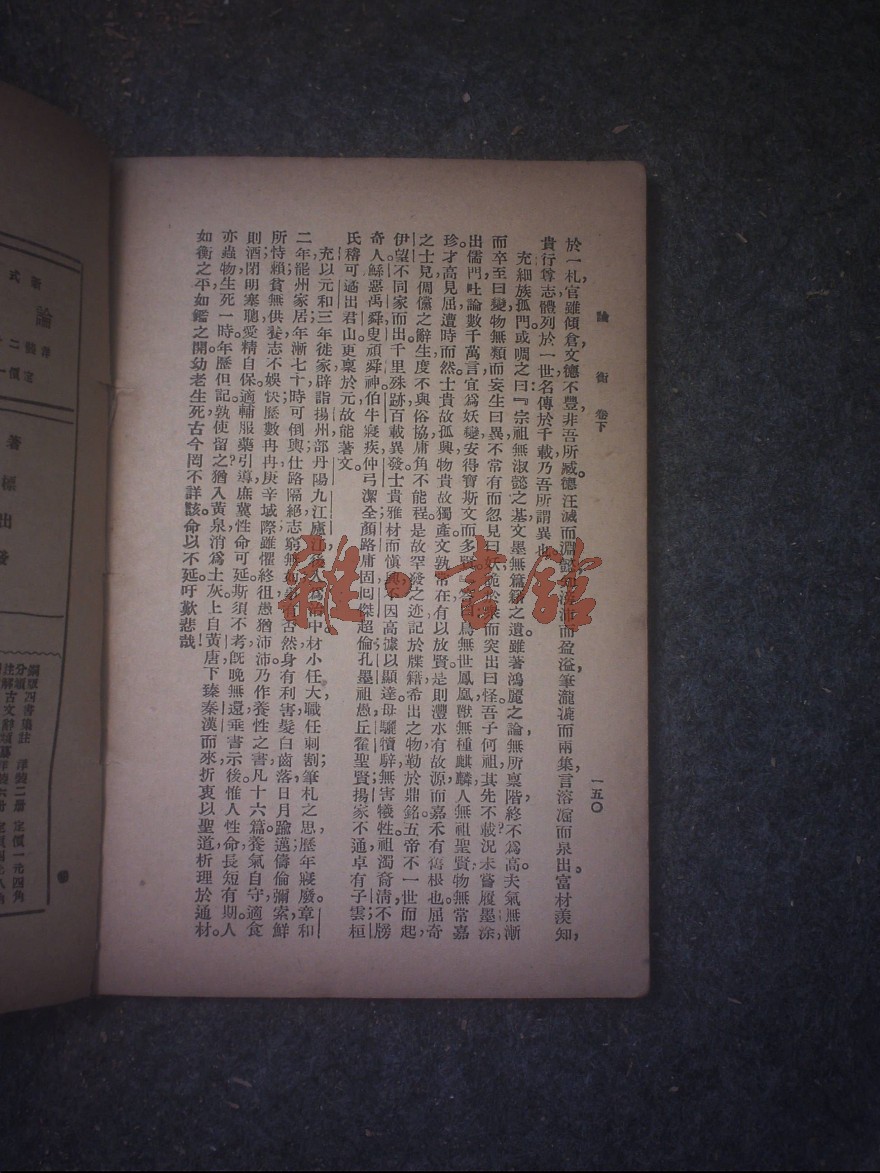 論衡 卷下
一五〇
於一札官雖傾倉文德不豐非吾所臧德汪濊而淵懿知滂沛而盈溢筆瀧漉而雨集言溶㴿而泉出富材羨知,
貴行尊志體列於一世名傳於千載乃吾所謂異也。
充細族孤門或啁之曰:『宗祖無淑懿之基文墨無篇籍之遺雖著鴻麗之論無所稟階終不爲高夫氣無漸
而卒至曰變物無類而妄生曰異不常有而忽見曰妖詭於衆而突出曰怪。吾子何祖其先不載況未嘗履墨涂,
出儒門吐論數千萬言宜爲妖變安得寶斯文而多賢』
鳥無世鳳凰獸無種麒麟人無祖聖賢物無常嘉
珍才高見屈遭時而然士貴故孤興物貴故獨產文孰常在有以放賢是則灃水有故源而嘉禾有舊根也屈奇
之士見倜儻之辭生度不與俗協庸角不能程是故罕發之迹記於牒籍希出之物勒於鼎銘。五帝不一世而起,
伊望不同家而出千里殊跡百載異發士貴雅材而愼興不因高據以顯達。母驪犢騂無害犧牲。祖濁裔淸不牓
奇人鯀惡禹舜叟頑舜神。伯牛寢疾仲弓潔全顏路庸固回傑超倫孔墨祖愚丘翟聖賢揚家不通卓有子雲桓
氏稽可遹出君山更稟於元故能著文。
充以元和三年徙家辟詣揚州部丹陽九江廬江後入爲治中材小任大職任刺割筆札之思歷年寢廢。章和
二年罷州家居年漸七十時可倒輿仕路隔絕志窮無如事有否然身有利害髮白齒落日月踰邁儔倫彌索鮮
所恃賴貧無供養志不娛快歷數冉冉庚辛域際雖懼終徂愚猶沛沛乃作養性之書凡十六篇。養氣自守適食
則酒閉明塞聰愛精自保。適輔服藥引導庶冀性命可延斯須不老旣晚無還垂書示後。惟人性命長短有期。人
亦蟲物生死一時年歷但記孰使留之猶入黃泉消爲土灰上自黃唐下臻秦漢而來折衷以聖道析理於通材。
如衡之平如鑑之開幼老生死古今罔不詳該。命以不延吁歎悲哉!
雜·書館
新式
論
洋裝二
定價一
著
標
出
發
銅版四書集註 洋裝二册 定價一元四角